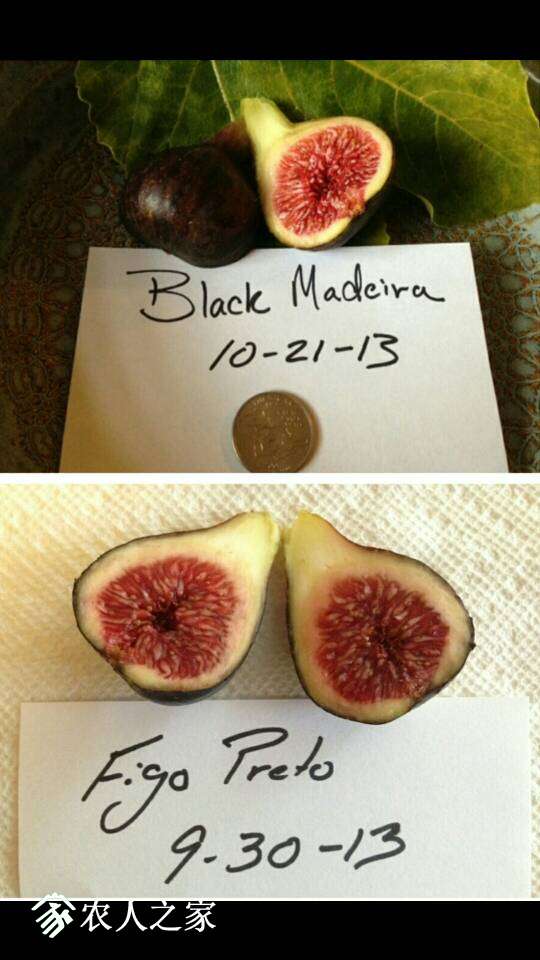 Black Madeira
10-21-13
Figo Preto
9-30-13
农人之家